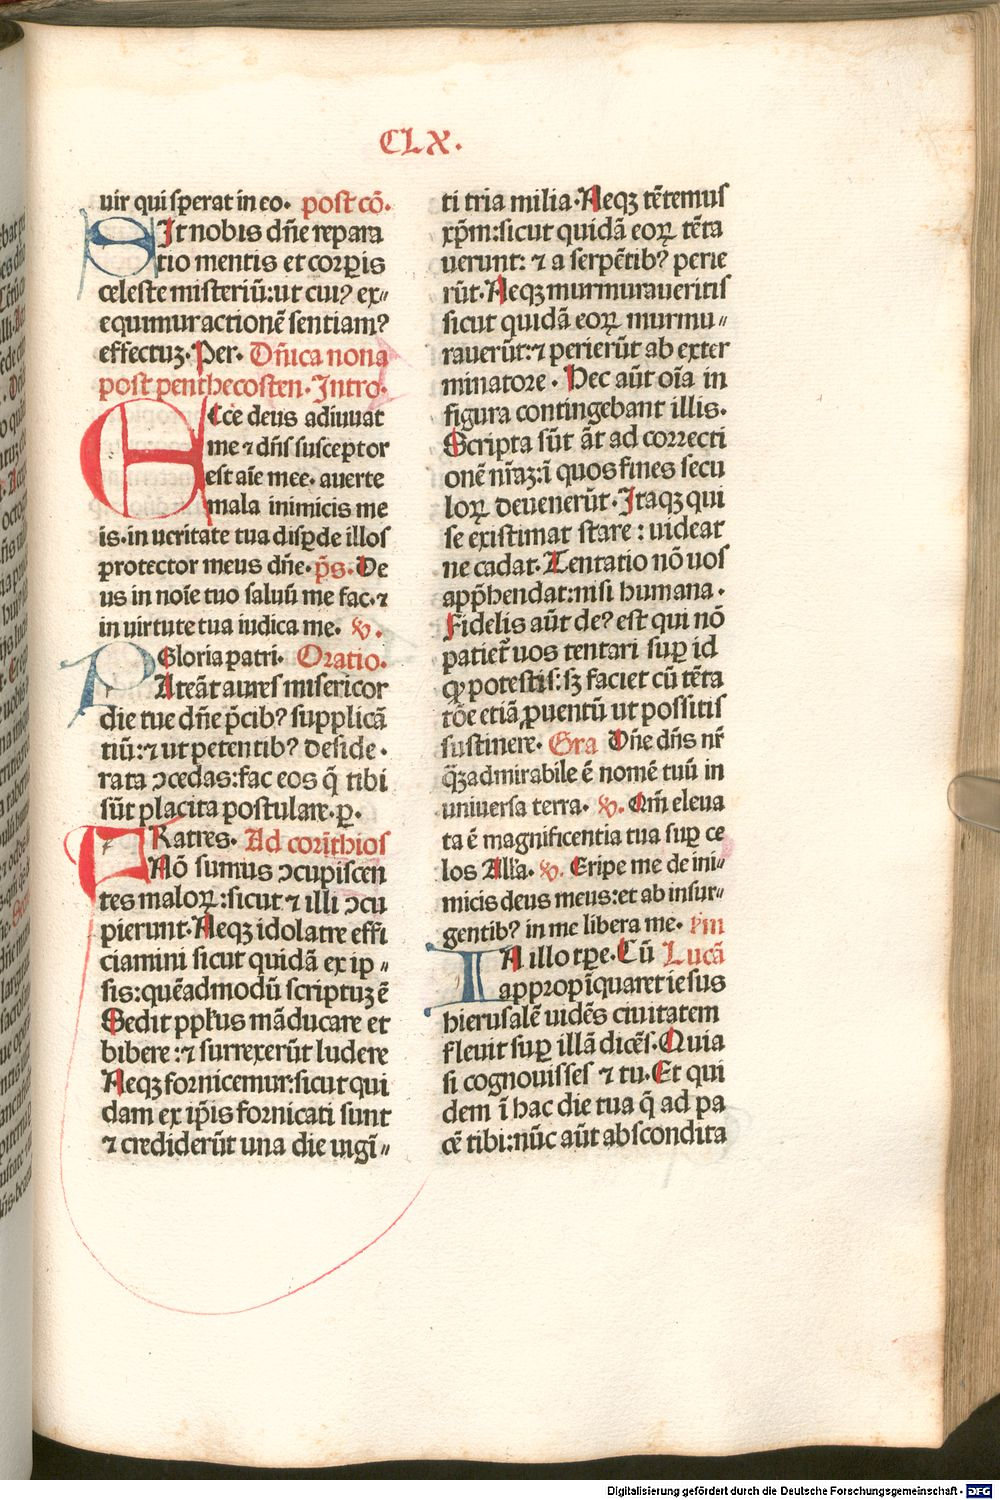 CLX.
uir qui sperat in eo. post cō.
SIt nobis dn̄e repara
tio mentis et corꝑis
celeste misteriū: ut cuiꝰ ex⸗
equimur actionē sentiamꝰ
effectuꝫ. Per. Dn̄ica nona
post penthecosten. Intro.
ECce deus adiuuat
me ⁊ dn̄s susceptor
est aīe mee. auerte
mala inimicis me
is. in ueritate tua disꝑde illos
protector meus dn̄e. p̄s. De
us in noīe tuo saluū me fac. ⁊
in uirtute tua iudica me. v.
Gloria patri. Oratio.
PAteāt aures misericor
die tue dn̄e p̄cibꝰ supplicā
tiū: ⁊ ut petentibꝰ deside.
rata ↄcedas: fac eos q̄ tibi
sūt placita postulare. ꝑ.
FRatres. Ad corīthios
Nō sumus ↄcupiscen
tes maloꝝ: sicut ⁊ illi ↄcu
pierunt. Neqꝫ idolatre effi
ciamini sicut quidā ex ip⸗
sis: quēadmodū scriptuꝫ ē
Sedit pplūs māducare et
bibere: ⁊ surrexerūt ludere
Neqꝫ fornicemur: sicut qui
dam ex ip̄is fornicati sunt
⁊ crediderūt una die uigī⸗
ti tria milia. Neqꝫ tētemus
xp̄m: sicut quidā eoꝝ tēta
uerunt: ⁊ a serpētibꝰ perie
rūt. Neqꝫ murmuraueritis
sicut quidā eoꝝ murmu⸗
rauerūt: ⁊ perierūt ab exter
minatore. Hec aūt oīa in
figura contingebant illis.
Scripta sūt āt ad correcti
onē nr̄aꝫ: ī quos fines secu
loꝝ deuenerūt. Itaqꝫ qui
se existimat stare: uideat
ne cadat. Tentatio nō uos
app̄hendat: nisi humana.
Fidelis aūt deꝰ est qui nō
patiet᷑ uos tentari suꝑ id
qꝙ potestis: sꝫ faciet cū tēta
tōe etiā ꝓuentū ut possitis
sustinere. Gra Dn̄e dn̄s nr̄
q̄ꝫ admirabile ē nomē tuū in
uniuersa terra. v. Qm̄ eleua
ta ē magnificentia tua suꝑ ce
los Alla. v. Eripe me de ini⸗
micis deus meus: et ab insur⸗
gentibꝰ in me libera me. sm
IN illo tꝑe. Cū Lucā
appropīquaret iesus
hierusalē uidēs ciuitatem
fleuit suꝑ illā dicēs. Quia
si cognouisses ⁊ tu. Et qui
dem ī hac die tua q̄ ad pa
cē tibi: nūc aūt abscondita
Digitalisierung gefördert durch die Deutsche Forschungsgemeinschaft - DFG